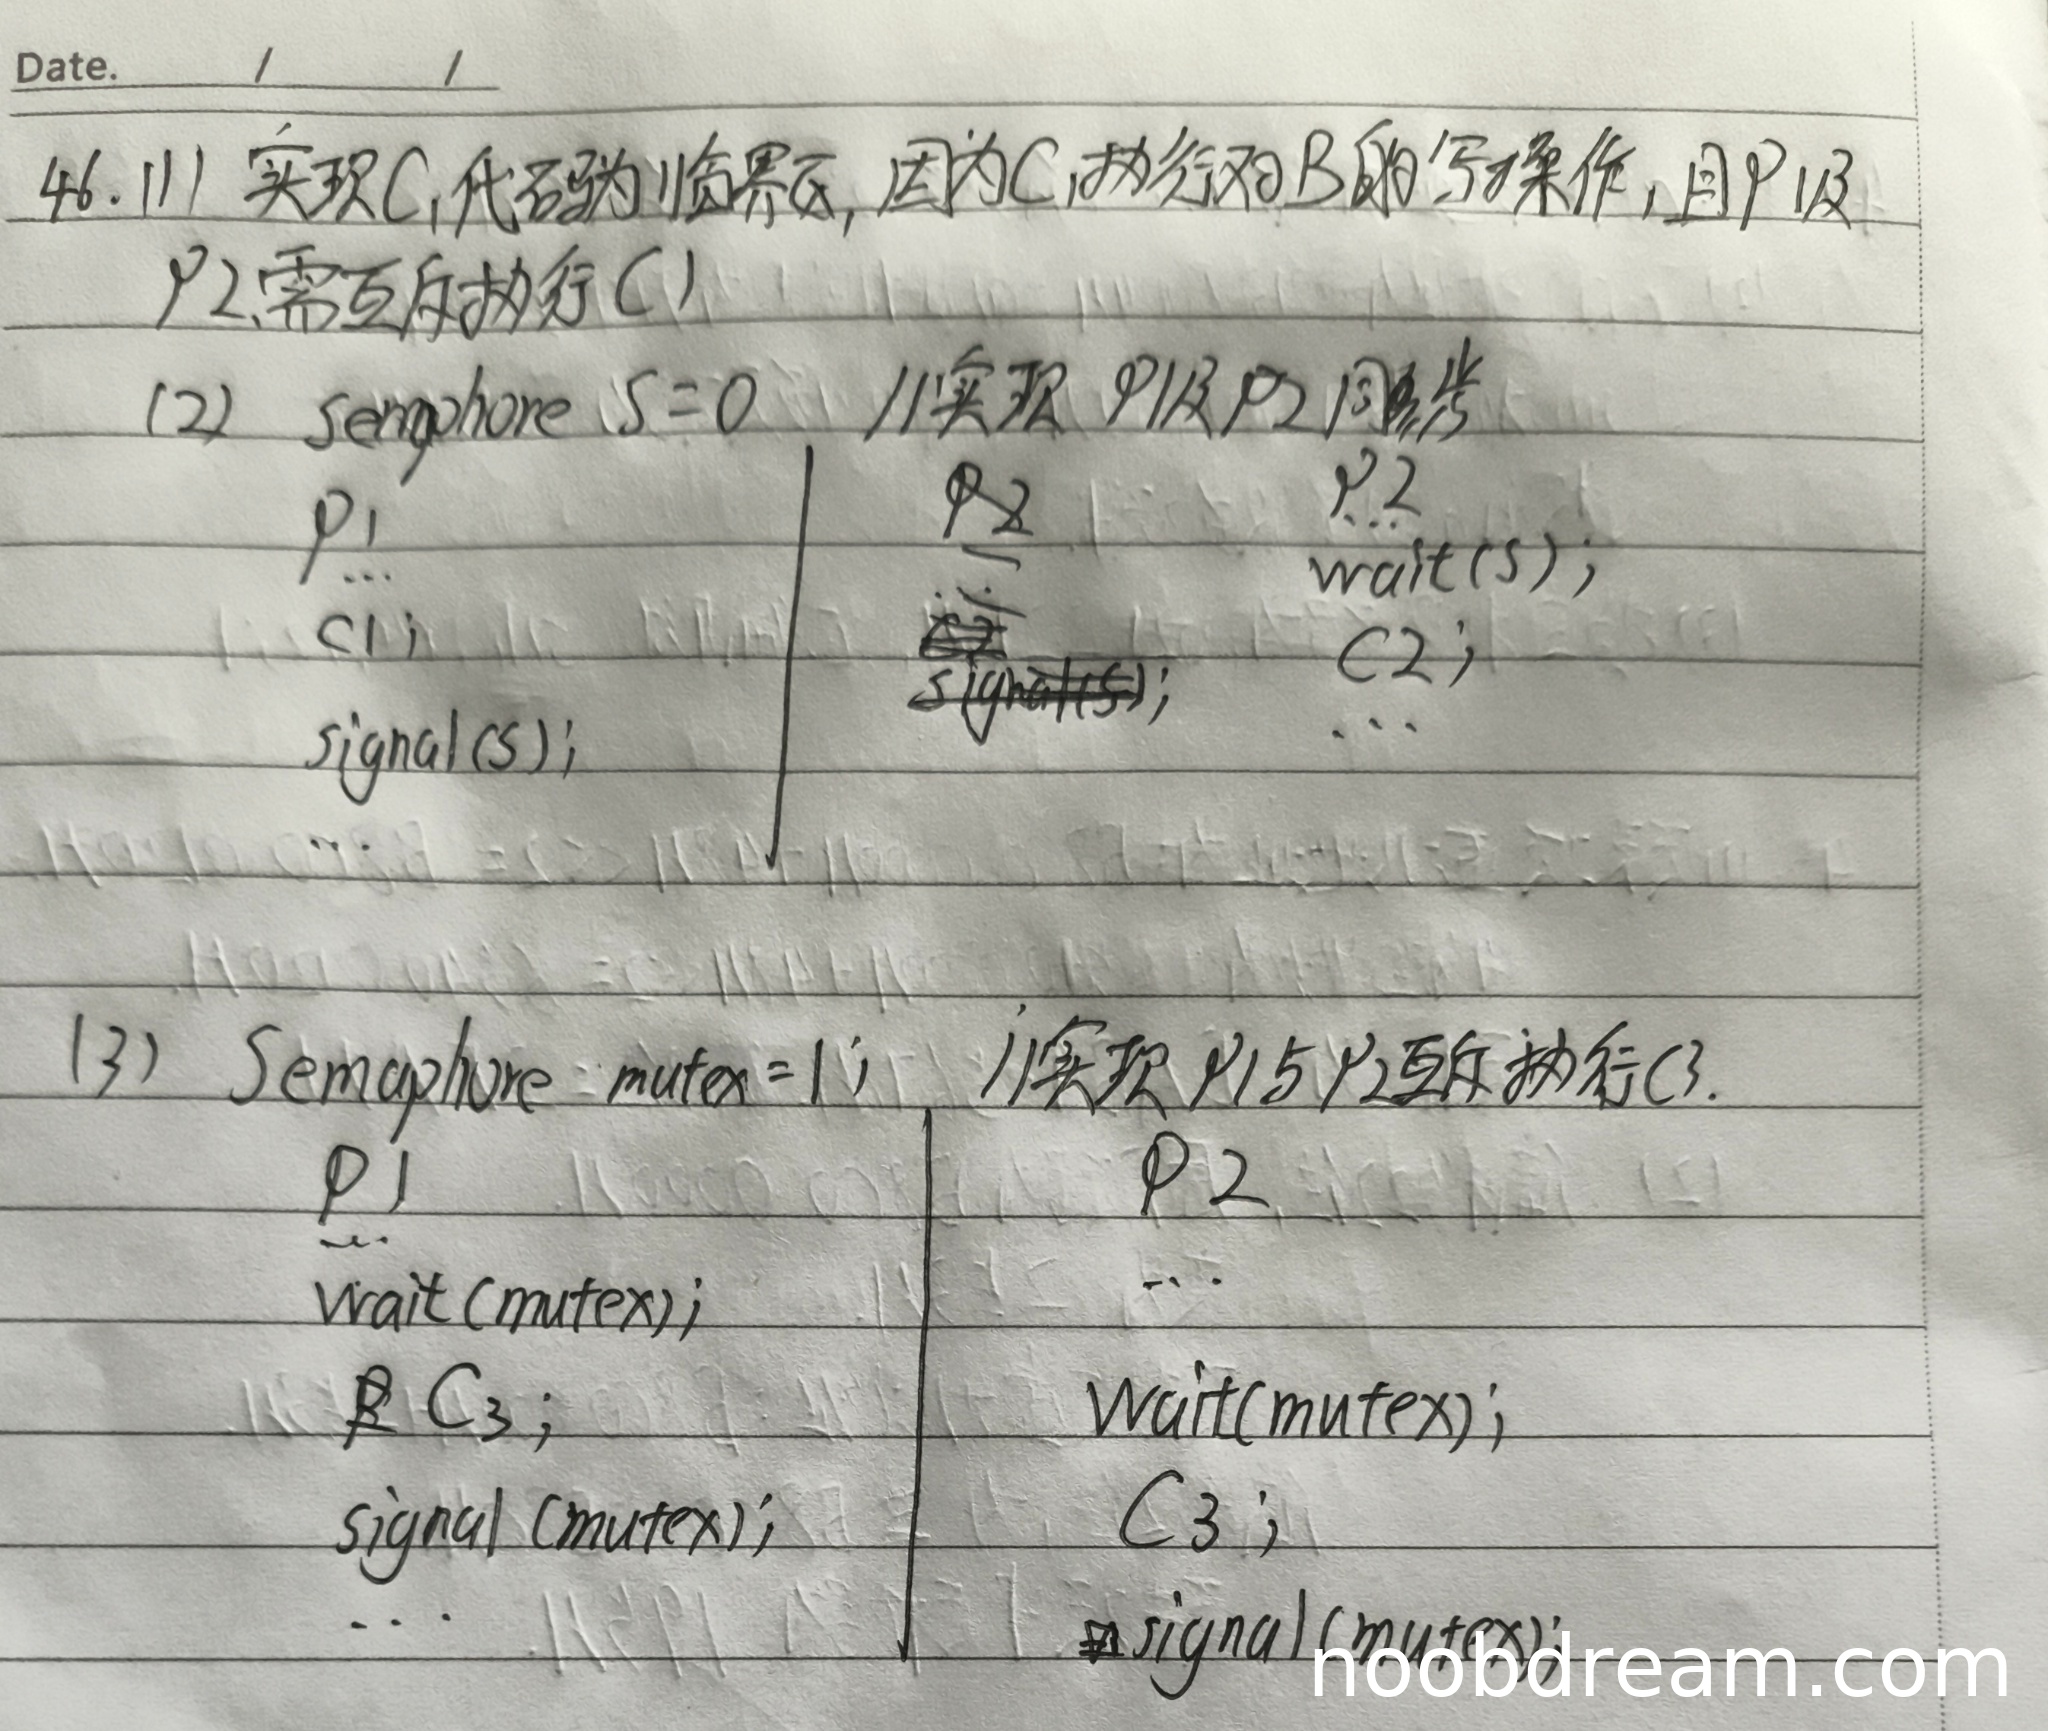 Date. / /
46.(1) 实现C1代码为临界区,因为C1执行对B的写操作,且P1及
P2需互斥执行C1
(2) semaphore S=0 //实现 P1及P2同步
P1
...
C1;
signal(S);
...
P2
...
C2
signal(S);
P2
...
wait(S);
C2;
...
(3) Semaphore mutex=1; //实现P1与P2互斥执行C3.
P1
...
wait(mutex);
C3;
signal(mutex);
...
P2
...
wait(mutex);
C3;
signal(mutex);
noobdream.com